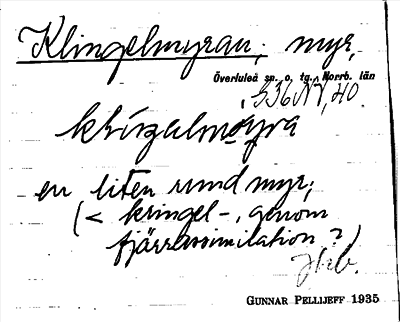 Klingelmyran, myr,
Överluleå sn. o. tg., Norrb. län
en liten rund myr,
(< kringel-, genom
fjärrassimilation?)
GUNNAR PELLIJEFF 1935